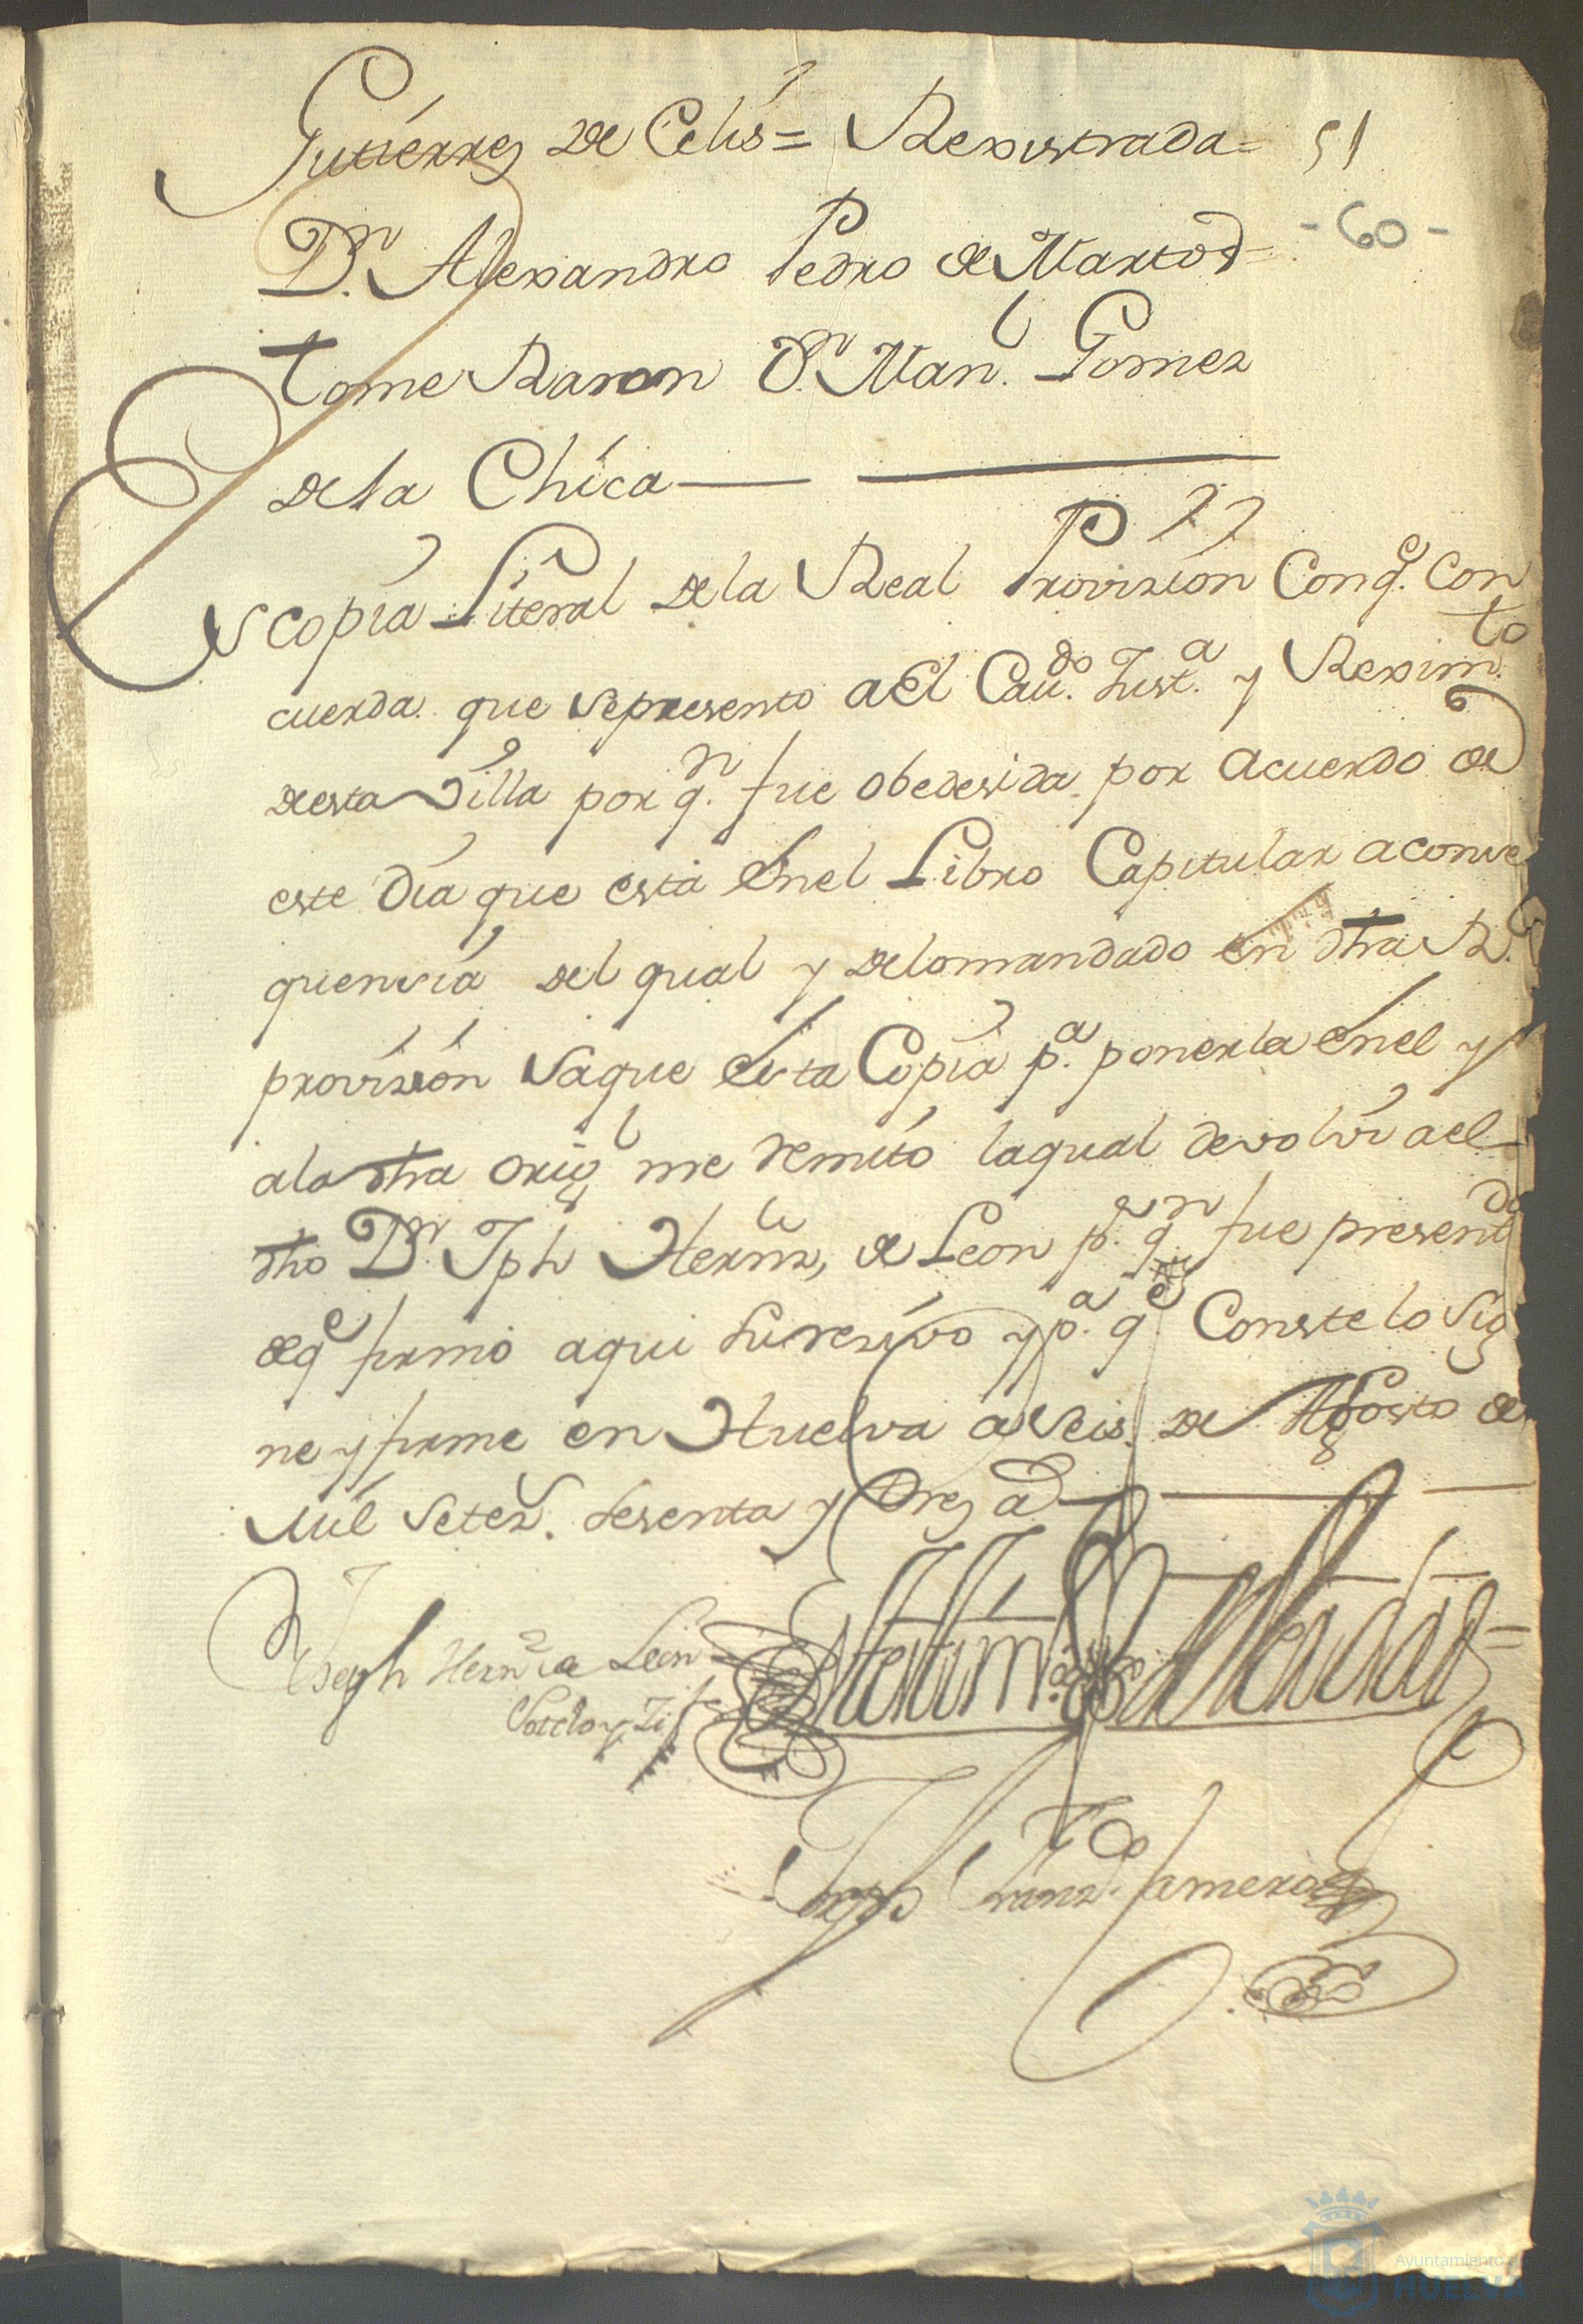 Gutierrez de Celis = Rexistrada = 51
- 60 -
Dn. Alexandro Pedro de Martos =
tome Razon Dn. Manl. Gomez
de la Chica
Es copia Literal de la Real Provizion Con qe. con
cuerda. que se presento a El Caudo. Justa. y Reximto
de esta Villa por qn. fue obedesida por acuerdo de
este Dia que está Enel Libro Capitular a conse
quensia del qual y de lo mandado en dha Rl.
provizion Saque Esta Copia pa. ponerla Enel y
a la dha origl me remito la qual devolvi a el
dho Dn. Jph Hernz, de Leon pr. qn fue presentdo
de qe firmó aqui su rezivo y pa. qe Conste lo Sig
ne y firme en Huelva a Seis de Agosto de
Mil Setez. sesenta y tres ad
Joseph Hernz de Leon
En testimo. de Verdad =
Joseph Franzco.
Ayuntamiento de
HUELVA